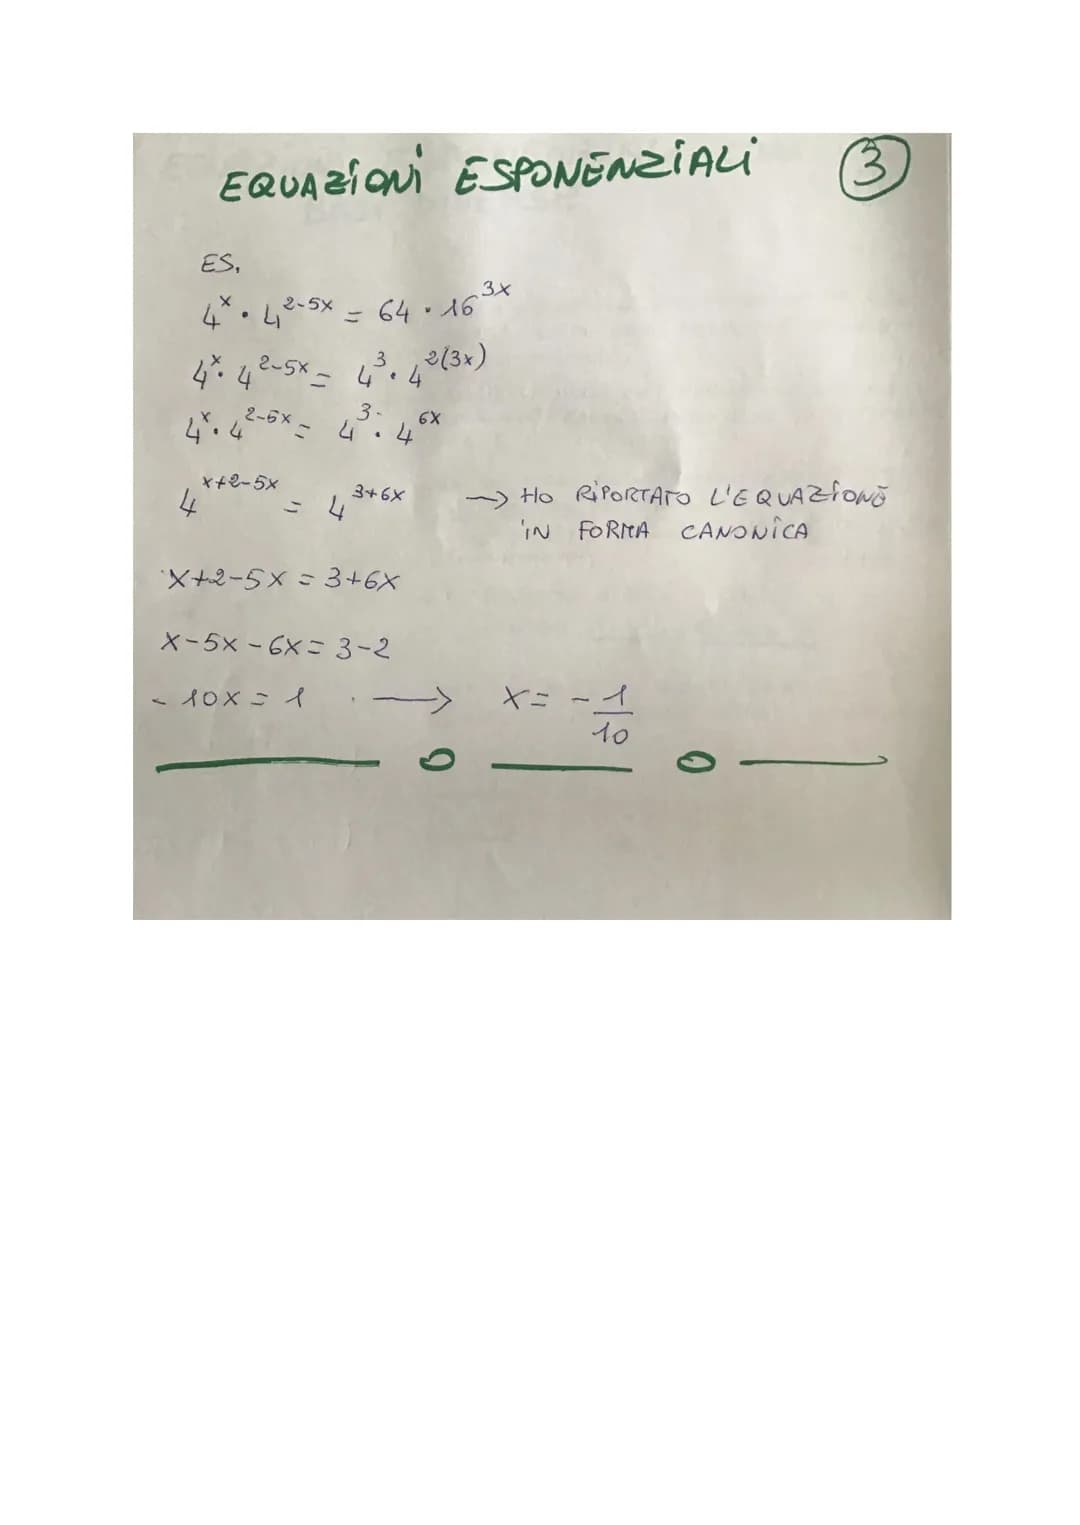 EQUAZIONI ESPONENZIALI 3
ES.
4^x · 4^(2-5x) = 64 · 16^(3x)
4^x · 4^(2-5x) = 4^3 · 4^(2(3x))
4^x · 4^(2-5x) = 4^3 · 4^(6x)
4^(x+2-5x) = 4^(3+6x) → HO RIPORTATO L'EQUAZIONE
IN FORMA CANONICA
x+2-5x = 3+6x
x-5x-6x = 3-2
-10x = 1 → x = -1/10